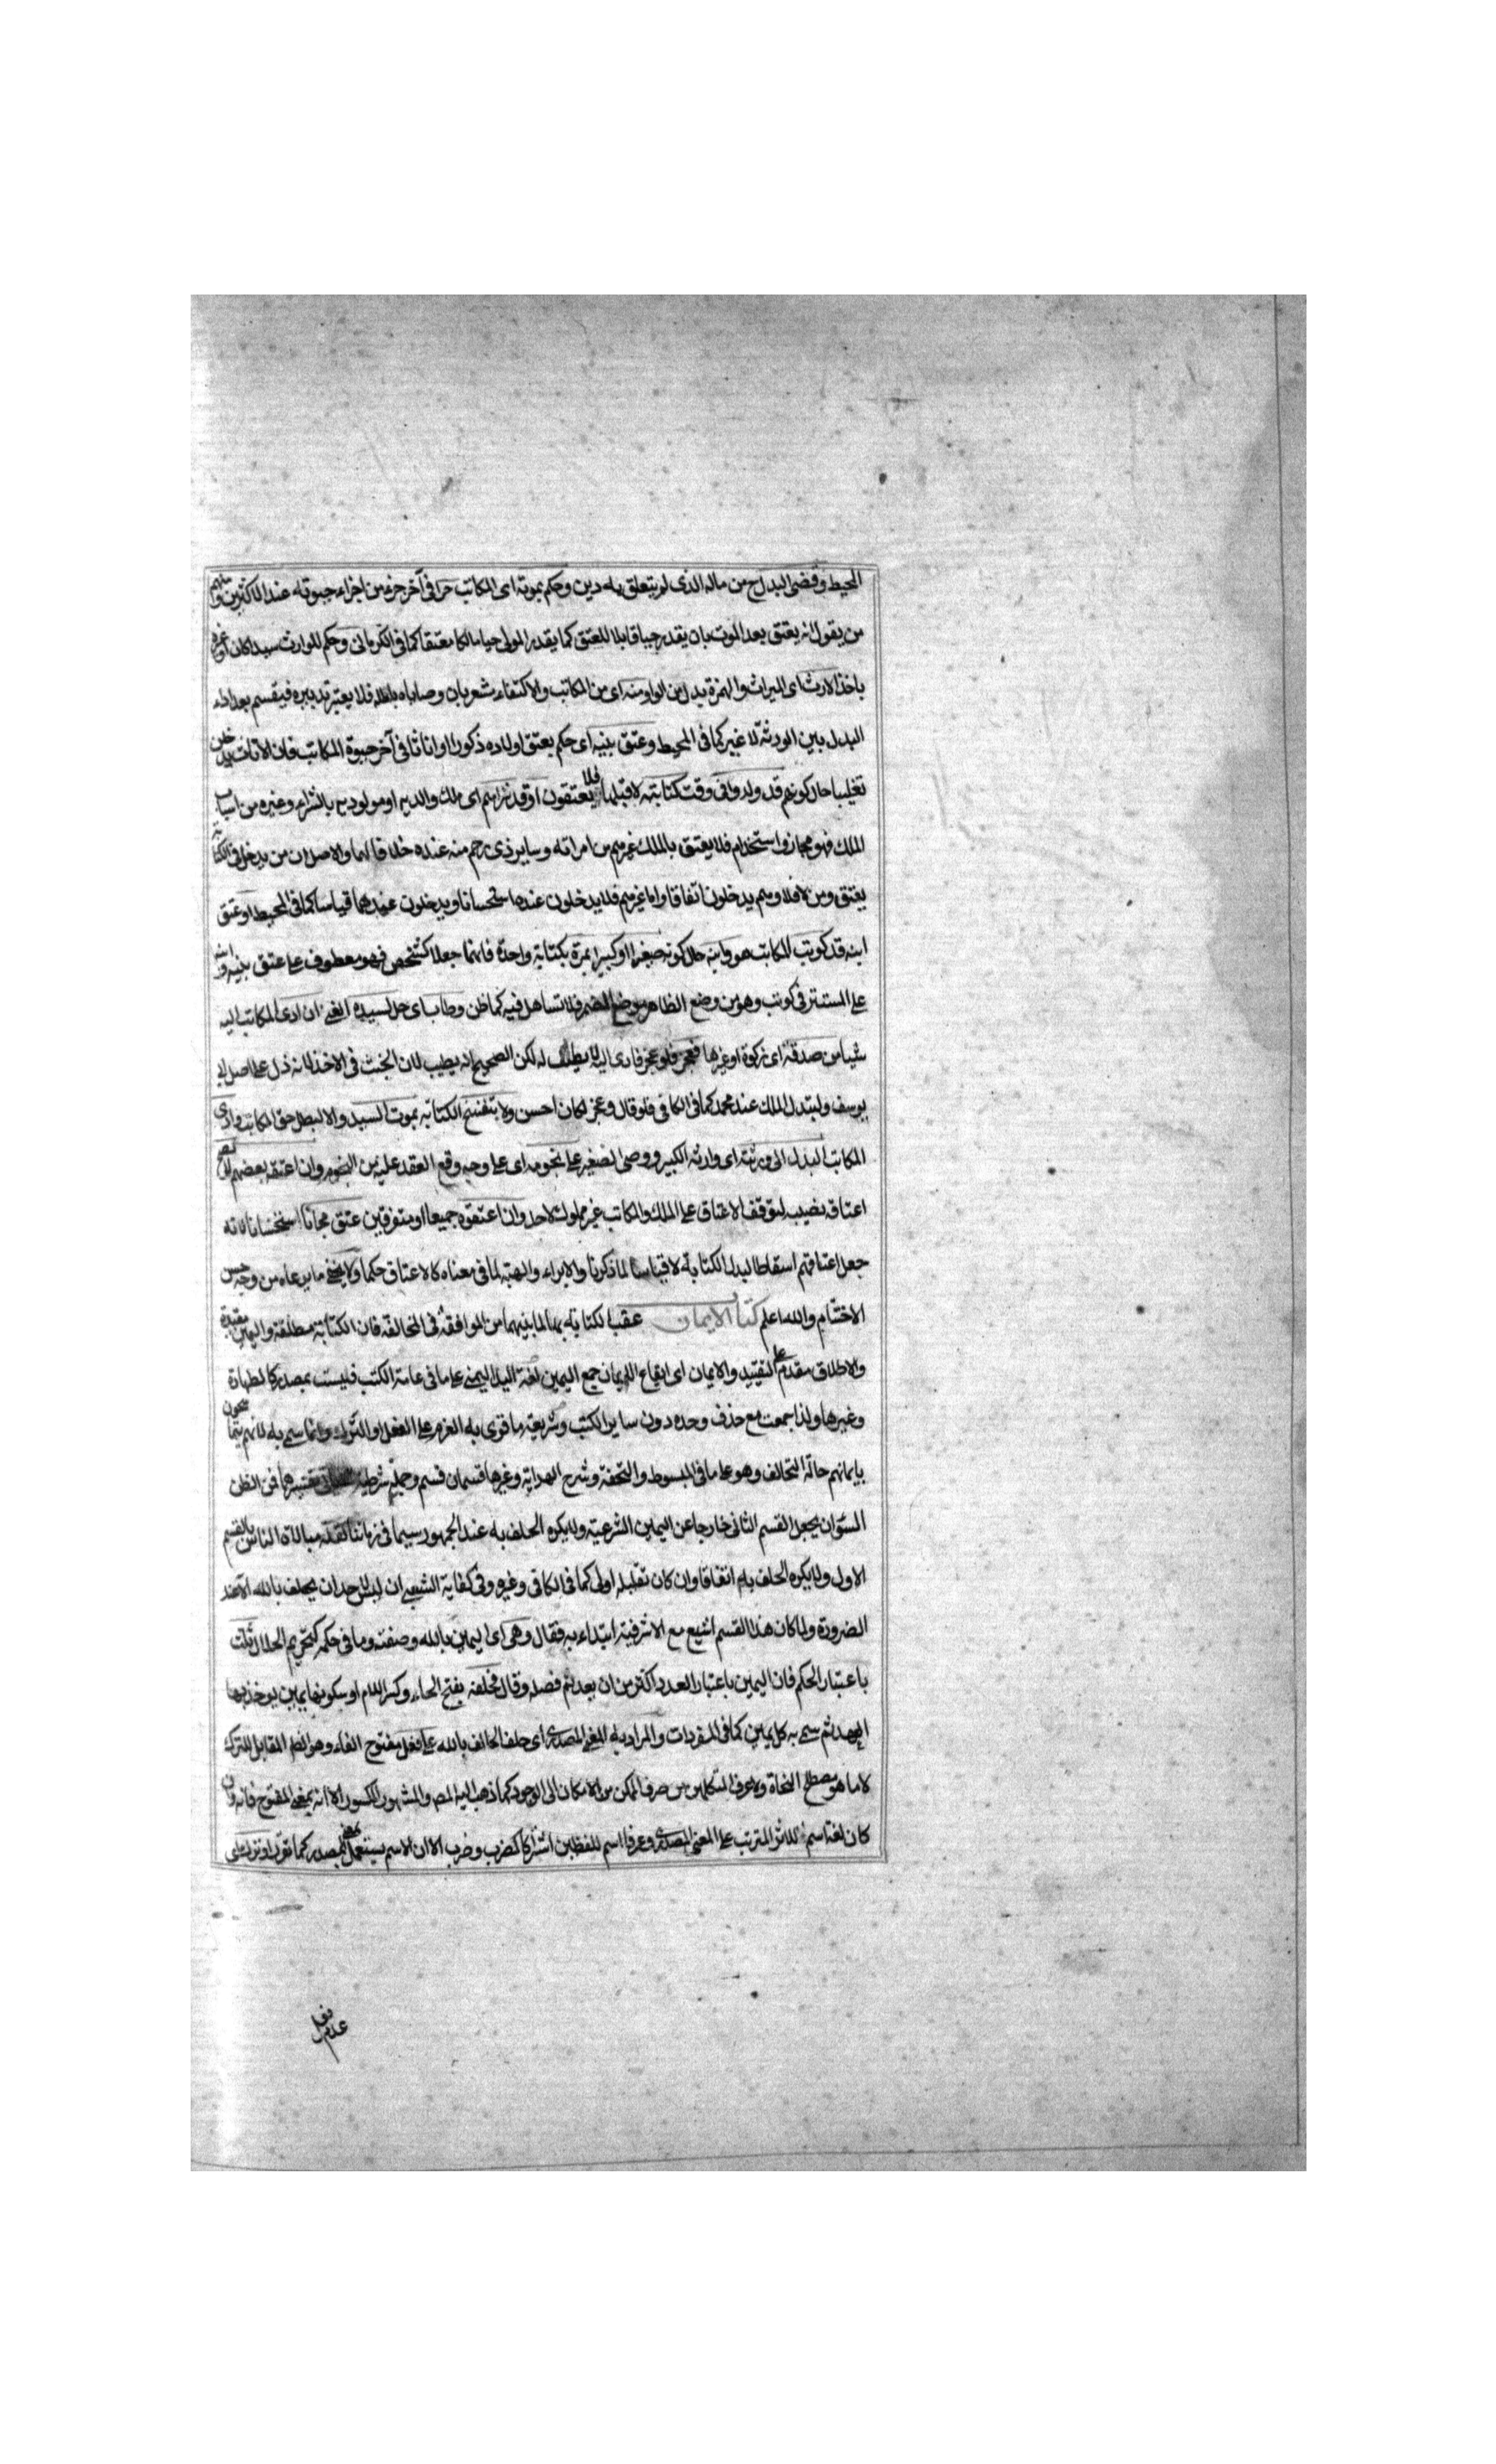 المحيط وقضى البدل ح من ماله الذى لم يتعلق به دين وحكم بموته اى المكاتب حرا فى آخر جزء من اجزاء حيوته عند الاكثرين ومنهم
من يقول انه يعتق بعد الموت بان يقدر حيا قابلا للعتق كما يقدر المولى حيا مالكا معتقا كما فى الكرمانى وحكم للوارث سيدا كان او غيره
باخذ الارث اى الميراث والهمزة بدل من الواو منه اى من المكاتب والاكتفاء مشعر بان وصاياه باطلة فلا يعتبر تدبيره فيقسم بعد اداء
البدل بين الورثة لا غير كما فى المحيط وعتق بنيه اى حكم بعتق اولاده ذكورا او اناثا فى آخر حيوة المكاتب فان الاناث يدخلن
تغليبا حال كونهم قد ولدوا فى وقت كتابته لا قبلها فلا يعتقون او قد شراهم اى ملك والديه او مولوديه بالشراء وغيره من اسباب
الملك فهو مجاز واستخدام فلا يعتق بالملك غيرهم من امراته وساير ذى رحم منه عنده خلافا لهما والاصل ان من يدخل فى الكتابة
يعتق ومن لا فلا وهم يدخلون اتفاقا واما غيرهم فلا يدخلون عنده استحسانا ويدخلون عندهما قياسا كما فى المحيط او عتق
ابنه قد كوتب المكاتب هو وابنه حال كونه صغيرا او كبيرا بمرة بكتابة واحدة فانهما جعلا كشخص فهو معطوف على عتق بنيه وابنه
على المستتر فى كوتب وهو من وضع الظاهر موضع المضمر فلا تساهل فيه كما ظن وطاب اى حل لسيده الغنى ان ادى المكاتب اليه
شيا من صدقة اى زكوة او غيرها فعجز فلو عجز فادى اليه لا يطيب له لكن الصحيح انه يطيب لان الخبث فى الاخذ لانه ذل على اصل ابى
يوسف ولتبدل الملك عند محمد كما فى الكافى فلو قال وعجز لكان احسن ولا ينفسخ الكتابة بموت السيد والا لبطل حق المكاتب وادى
المكاتب البدل الى ورثته اى وارثه الكبير ووصى الصغير على نجومه اى على وجه وقع العقد عليه من النجوم وان اعتقه بعضهم لم يصح
اعتاقه نصيبه لتوقف الاعتاق على الملك والمكاتب غير مملوك لاحد وان اعتقوه جميعا او متفرقين عتق مجانا استحسانا لانه
جعل اعتاقهم اسقاطا لبدل الكتابة لا قياسا لما ذكرنا والابراء والهبة لما فى معناه كالاعتاق حكما ولا يخفى ما يرعاه من وجه حسن
الاختتام والله اعلم كتاب الايمان عقب الكتابة بها لما بينهما من الموافقة فى المخالفة فان الكتابة مطلقة واليمين مقيدة
والاطلاق مقدم على التقييد والايمان اى ايقاع الايمان جمع اليمين لغة اليد اليمنى على ما فى عامة الكتب فليست بمصدر كالطهارة
وغيرها ولذا جمعت مع حذف وحده دون ساير الكتب وشريعة ما قوى به العزم على الفعل او الترك وانما سمى به لانهم يتماسحون
بايمانهم حالة التحالف وهو على ما فى المبسوط والتحفة وشرح الهداية وغيرها قسمان قسم وجملة شرطية تفسيرها فمن الظن
السوء ان يجعل القسم الثانى خارجا عن اليمين الشرعية ولا يكره الحلف به عند الجمهور سيما فى زماننا لقلة مبالاة الناس بالقسم
الاول ولا يكره الحلف به اتفاقا وان كان تقليله اولى كما فى الكافى وغيره وفى كفاية الشعبى ان ليس لاحد ان يحلف بالله الا عند
الضرورة ولما كان هذا القسم اشيع مع الاشرفية ابتداء به فقال وهى اى اليمين بالله وصفته وما فى حكمه كتحريم الحلال ثلث
باعتبار الحكم فان اليمين باعتبار العدد اكثر من ان يعد ثم فصله وقال فحلفه بفتح الحاء وكسر اللام او سكونها يمين يوخذ بها
العهد ثم سمى به كل يمين كما فى المفردات والمراد به المعنى المصدرى اى حلف الحالف بالله على فعل مفتوح الفاء وهو الظ المقابل للترك
لا ما هو مصطلح النحاة ولا عرف المتكلمين من صرف الممكن من الامكان الى الوجود كما ذهب اليه المص والمشهور المكسور الا انه بمعنى المفتوح فانه وان
كان لغة اسم للاثر المترتب على المعنى المصدرى وعرفا اسم للفظين اشتركا كضرب وضرب الا ان الاسم يستعمل بمعنى المصدر كما تقرر او ترك على
عدم